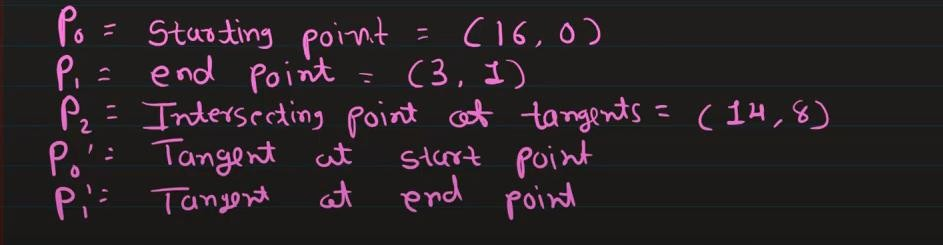 P₀ = Starting point = (16, 0)
P₁ = end point = (3, 1)
P₂ = Intersecting point of tangents = (14, 8)
P₀' = Tangent at start point
P₁' = Tangent at end point